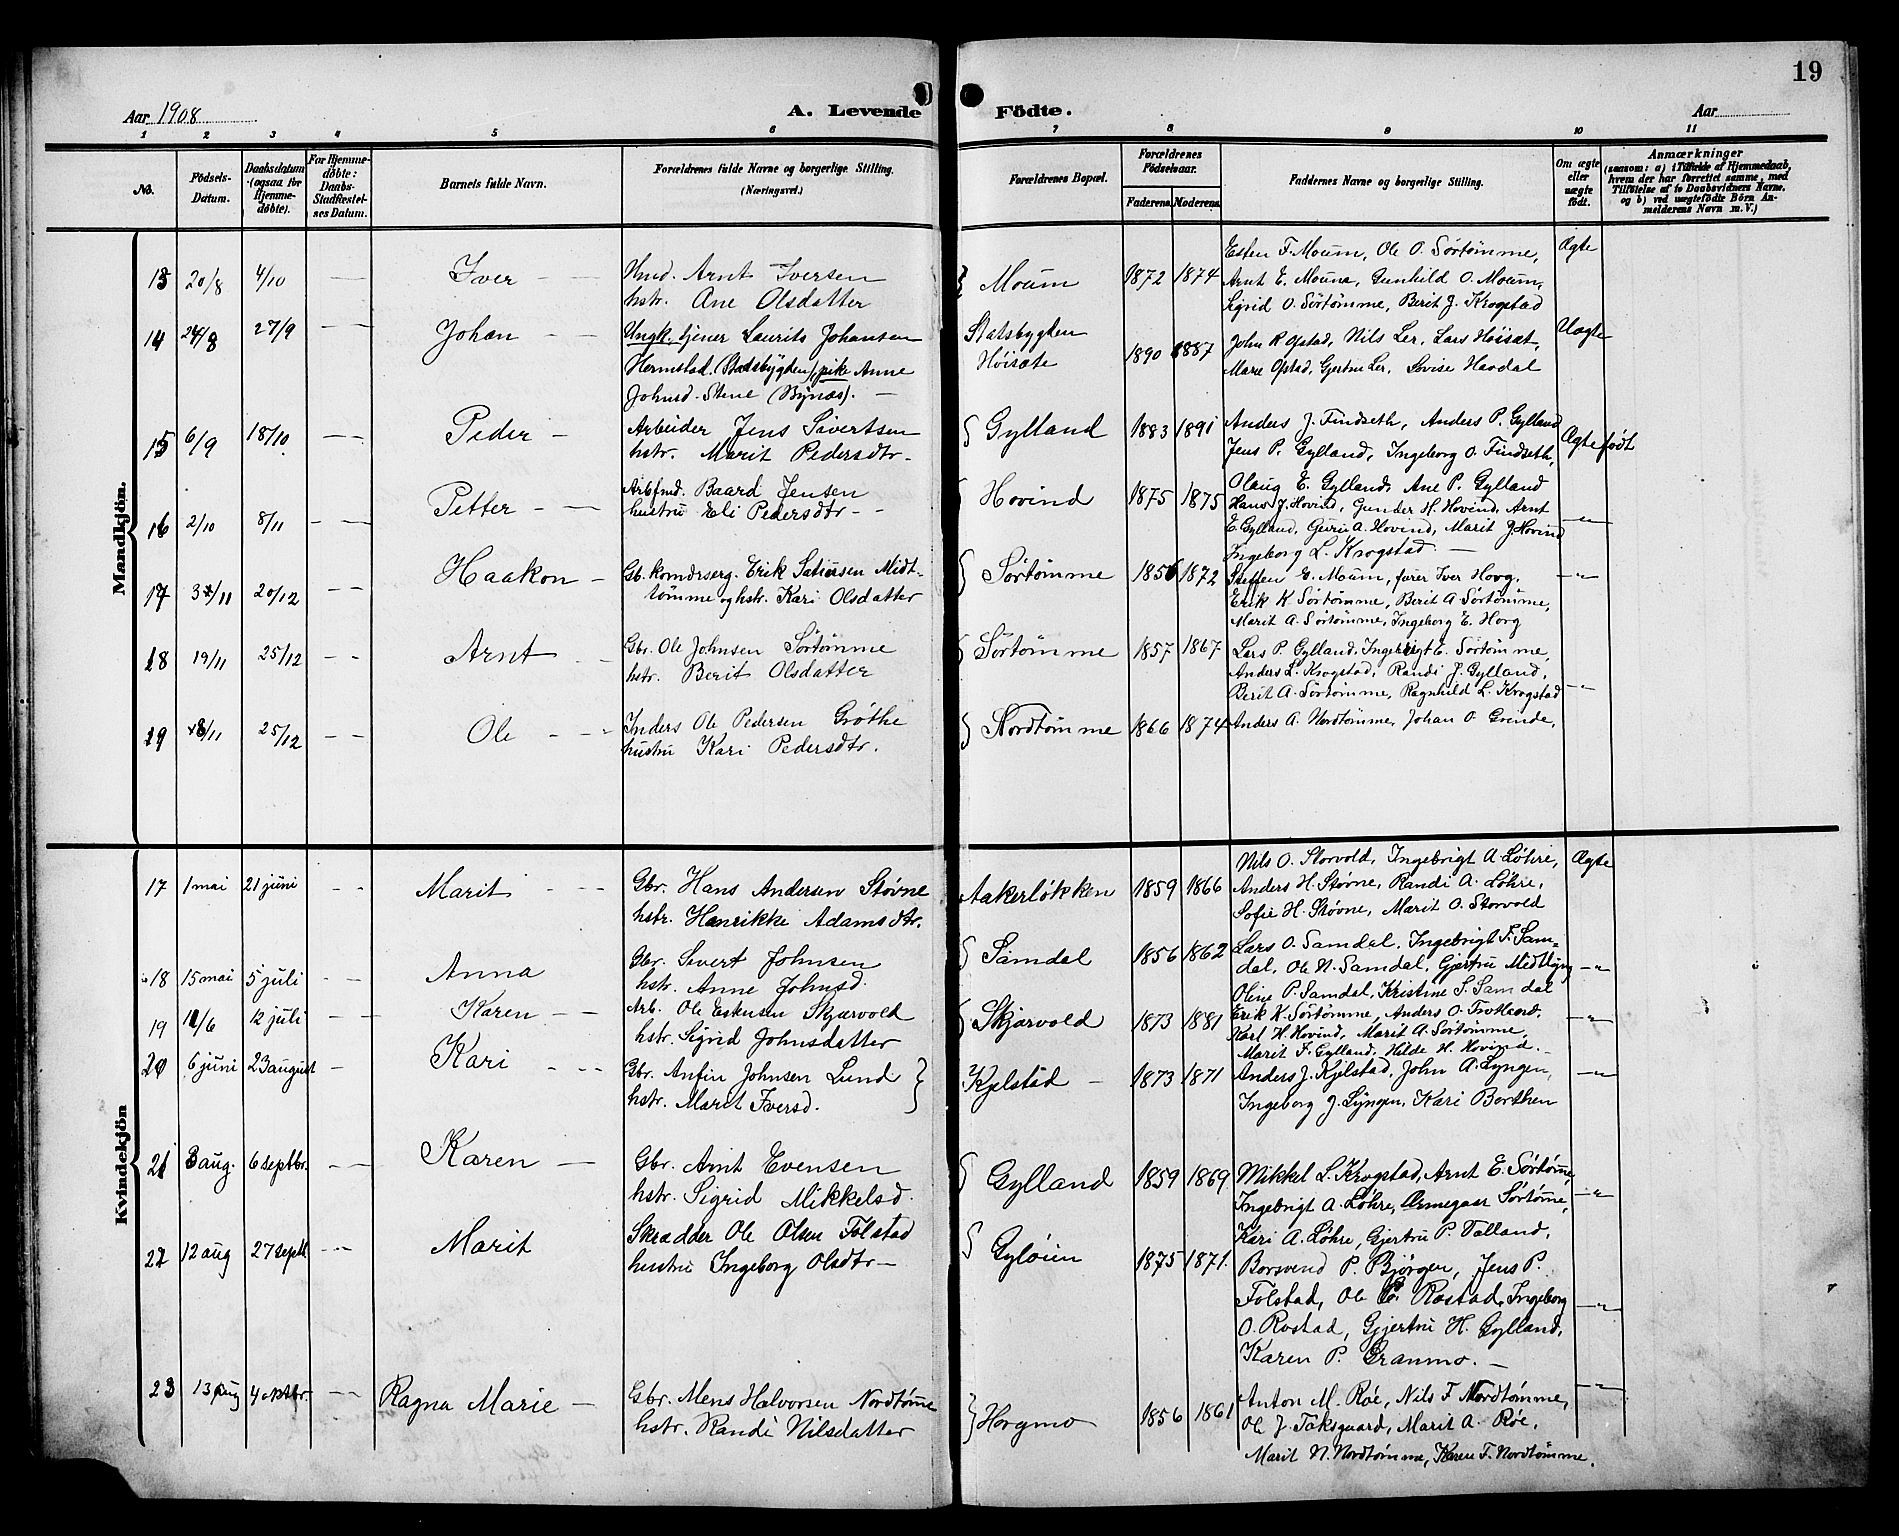 19
Aar 1908
A. Levende Födte.
Aar
1 2 3 4 5 6 7 8 9 10 11
No.
Födsels-Datum.
Daabsdatum (ogsaa for Hjemme-döbte).
For Hjemme-döbte: Daabs-Stadfæstel-ses Datum.
Barnets fulde Navn.
Forældrenes fulde Navne og borgerlige Stilling.
(Næringsvei.)
Forældrenes Bopæl.
Forældrenes Födselsaar.
Faderens. Moderens.
Faddernes Navne og borgerlige Stilling.
Om ægte eller uægte födt.
Anmærkninger
(saasom: a) i Tilfælde af Hjemmedaab,
hvem der har forrettet samme, med
Tilföielse af to Daabsvidners Navne,
og b) ved uægtefödte Börn An-
melderens Navn m. V.)
Mandkjön.
13 20/8 4/10 — Iver — — Hmd. Arnt Iversen
hstr. Ane Olsdatter
Moum 1872 1874
Esten F. Moum, Ole O. Sørtømme,
Arnt E. Mouna, Gunhild O. Moum,
Sigrid O. Sørtømme, Berit J. Krogstad
Ægte
14 24/8 27/9 — — Johan — — Ungk. tjener Laurits Johansen
Hermstad (Stadsbygden), pike Anne
Johnsd. Stene (Bynæs). —
Statsbygden
Høisæte
1890 1887
John R Opstad, Nils Ler, Lars Høisæt,
Mare Opstad, Gjertru Ler, Lovise Havdal
Uægte
15 6/9 18/10. — — Peder — Arbeider Jens Sivertsen
hstr. Marit Pedersdtr.
Gylland 1883 1891
Anders J. Findseth, Anders P. Gylland
Jens P. Gylland, Ingeborg O. Findseth,
Olaug E. Gylland, Ane P. Gylland
Ægte født
16 2/10 8/11 — — Petter — — Arbfmd. Baard Jensen
hustru Eli Pedersdtr - -
Hovind 1875 1875
Hans J. Hovind, Gunder H. Hovind, Arnt
E. Gylland, Guru A. Hovind, Marit J. Hovind
Ingeborg L. Krogstad. —
—"—
17 3/11 20/12 — — Haakon — Gb. komdrserg. Erik Midt-
tømme og hstr. Kari Olsdatter
Sørtømme 1856 1872
Steffen E. Moum, fører Iver Horg.
Erik K Sørtømme, Berit A. Sørtømme,
Marit A. Sørtømme, Ingeborg E. Horg
—"—
18 19/11 25/12 - - Arnt - - Gbr. Ole Johnsen Sørtømme
hstr. Berit Olsdatter
Sørtømme 1857 1867
Lars P. Gylland, Ingebrigt E. Sørtømme,
Anders L. Krogstad, Randi J. Gylland,
Berit A. Sørtømme, Ragnhild L. Krogstad
—"—
19 18/11 25/12 — — Ole - - - Inders Ole Pedersen Grøthe
hustru Kari Pedersdtr.
Nordtømme 1866 1874
Anders A. Nordtømme, Johan O. Grinde,
Kvindekjön
17 1 mai 21 juni - - Marit - - - Gbr. Hans Andersen Støvne
hstr. Henrikke Adamsdtr.
Aakerløkken 1859 1866
Nils O. Storvold, Ingebrigt A. Løhre,
Anders H. Støvne, Randi A. Løhre,
Sofie H. Støvne, Marit O. Storvold
Ægte
18 15 mai 5 juli — — Anna Gbr. Sivert Johnsen
hstr. Anne Johnsd.
Samdal 1856 1862
Lars O. Samdal, Ingebrigt F. Sam=
dal, Ole N. Samdal, Gjertru Midtlyng
Oline P. Samdal, Kristine S. Samdal
—"—
19 11/6 12 juli — — Karen — — Arb. Ole Eskusen Skjærvold
hstr. Sigrid Johnsdatter
Skjærvold 1873 1881
Erik K. Sørtømme, Anders O.
Karl H. Hovind, Marit A. Sørtømme,
Marit F. Gylland, Hilde H. Hovind. —
—"—
20 6 juni 23 august — Kari - - - Gbr. Anfin Johnsen Lund
hstr. Marit Iversd.
Kjelstad — 1873 1871
Anders J. Kjelstad, John A. Lyngen,
Ingeborg J. Lyngen, Kari Borthen
—"—
21 3 aug. 6 septbr. — — Karen — Gbr. Arnt Evensen
hstr. Sigrid Mikkelsd.
Gylland 1859 1869.
Mikkel L. Krogstad, Arnt E. Sørtømme,
Ingebrigt A. Løhre, Sørtømme,
Kari A. Løhre, Gjertru P. Valland,
—"—
22 12 aug 27 septb - - Marit Skrædder Ole Olsen Folstad
hustru Ingeborg Olsdtr —
Gyløien 1875 1871.
P. Bjørgen, Jens P.
Folstad, Ole Rostad, Ingeborg
O. Rostad, Gjertru H. Gylland,
Karen P. Granmo. —
—"—
23 13 aug 4 oktbr. — — Ragna Marie — Gbr. Mens Halvorsen Nordtømme
hstr. Randi Nilsdatter
Horgmo 1856 1861
Anton M. Røe, Nils F. Nordtømme,
Ole J. Taksgaard, Marit A. Røe,
Marit N. Nordtømme, Karen F. Nordtømme.
—"—